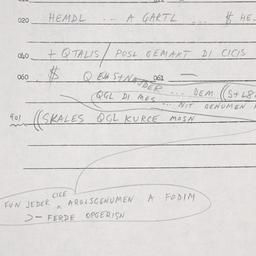 020 HEMDL ... A GARTL ... $ HE-
040 + QTALIS / POSL GEMAKT DI CICIS
060 $ Q EH S+NODER ... DEM ((S+L8
061
QGL DI MOS ... NIT GENUMEN
401 ((SKALES QGL KURCE MOSN
CICE
FUN JEDER AROLSGENUMEN A FODIM
>- FERDE OPGERISN